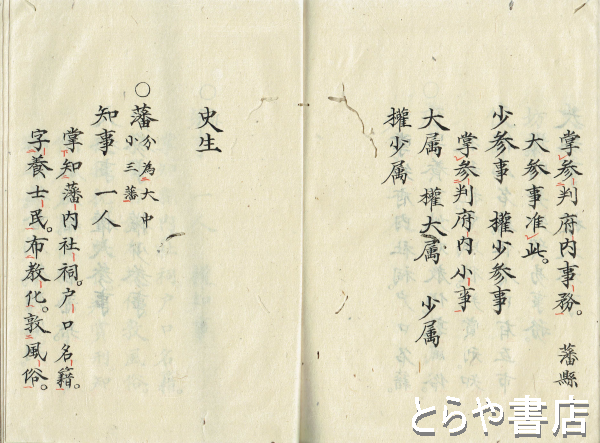 掌参判府内事務。 藩縣
大参事准此。
少参事 權少参事
掌参判府内小事
大属 權大属 少属
權少属
史生
○藩 分為大中
小三藩
知事 一人
掌知藩内社祠。戸口名籍。
字養士民。布教化。敦風俗。
とらや書店